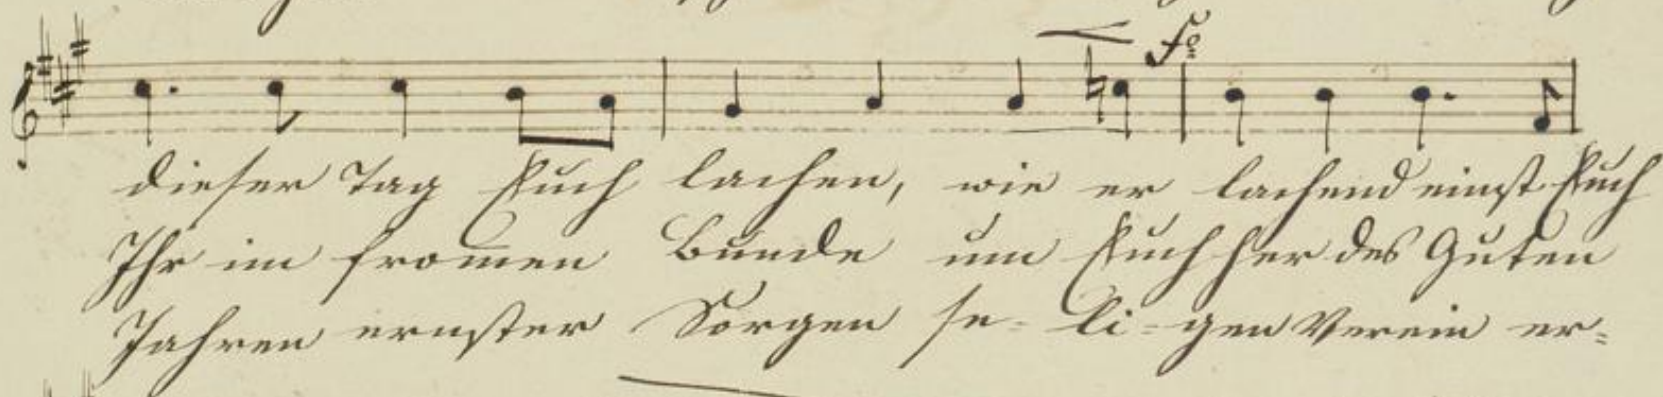 fo
dieser Tag Euch lachen, wie er lachend einst Euch
Ihr im from̅en Bunde um Euch her des Guten
Jahren ernster Sorgen se- li- gen Verein er-